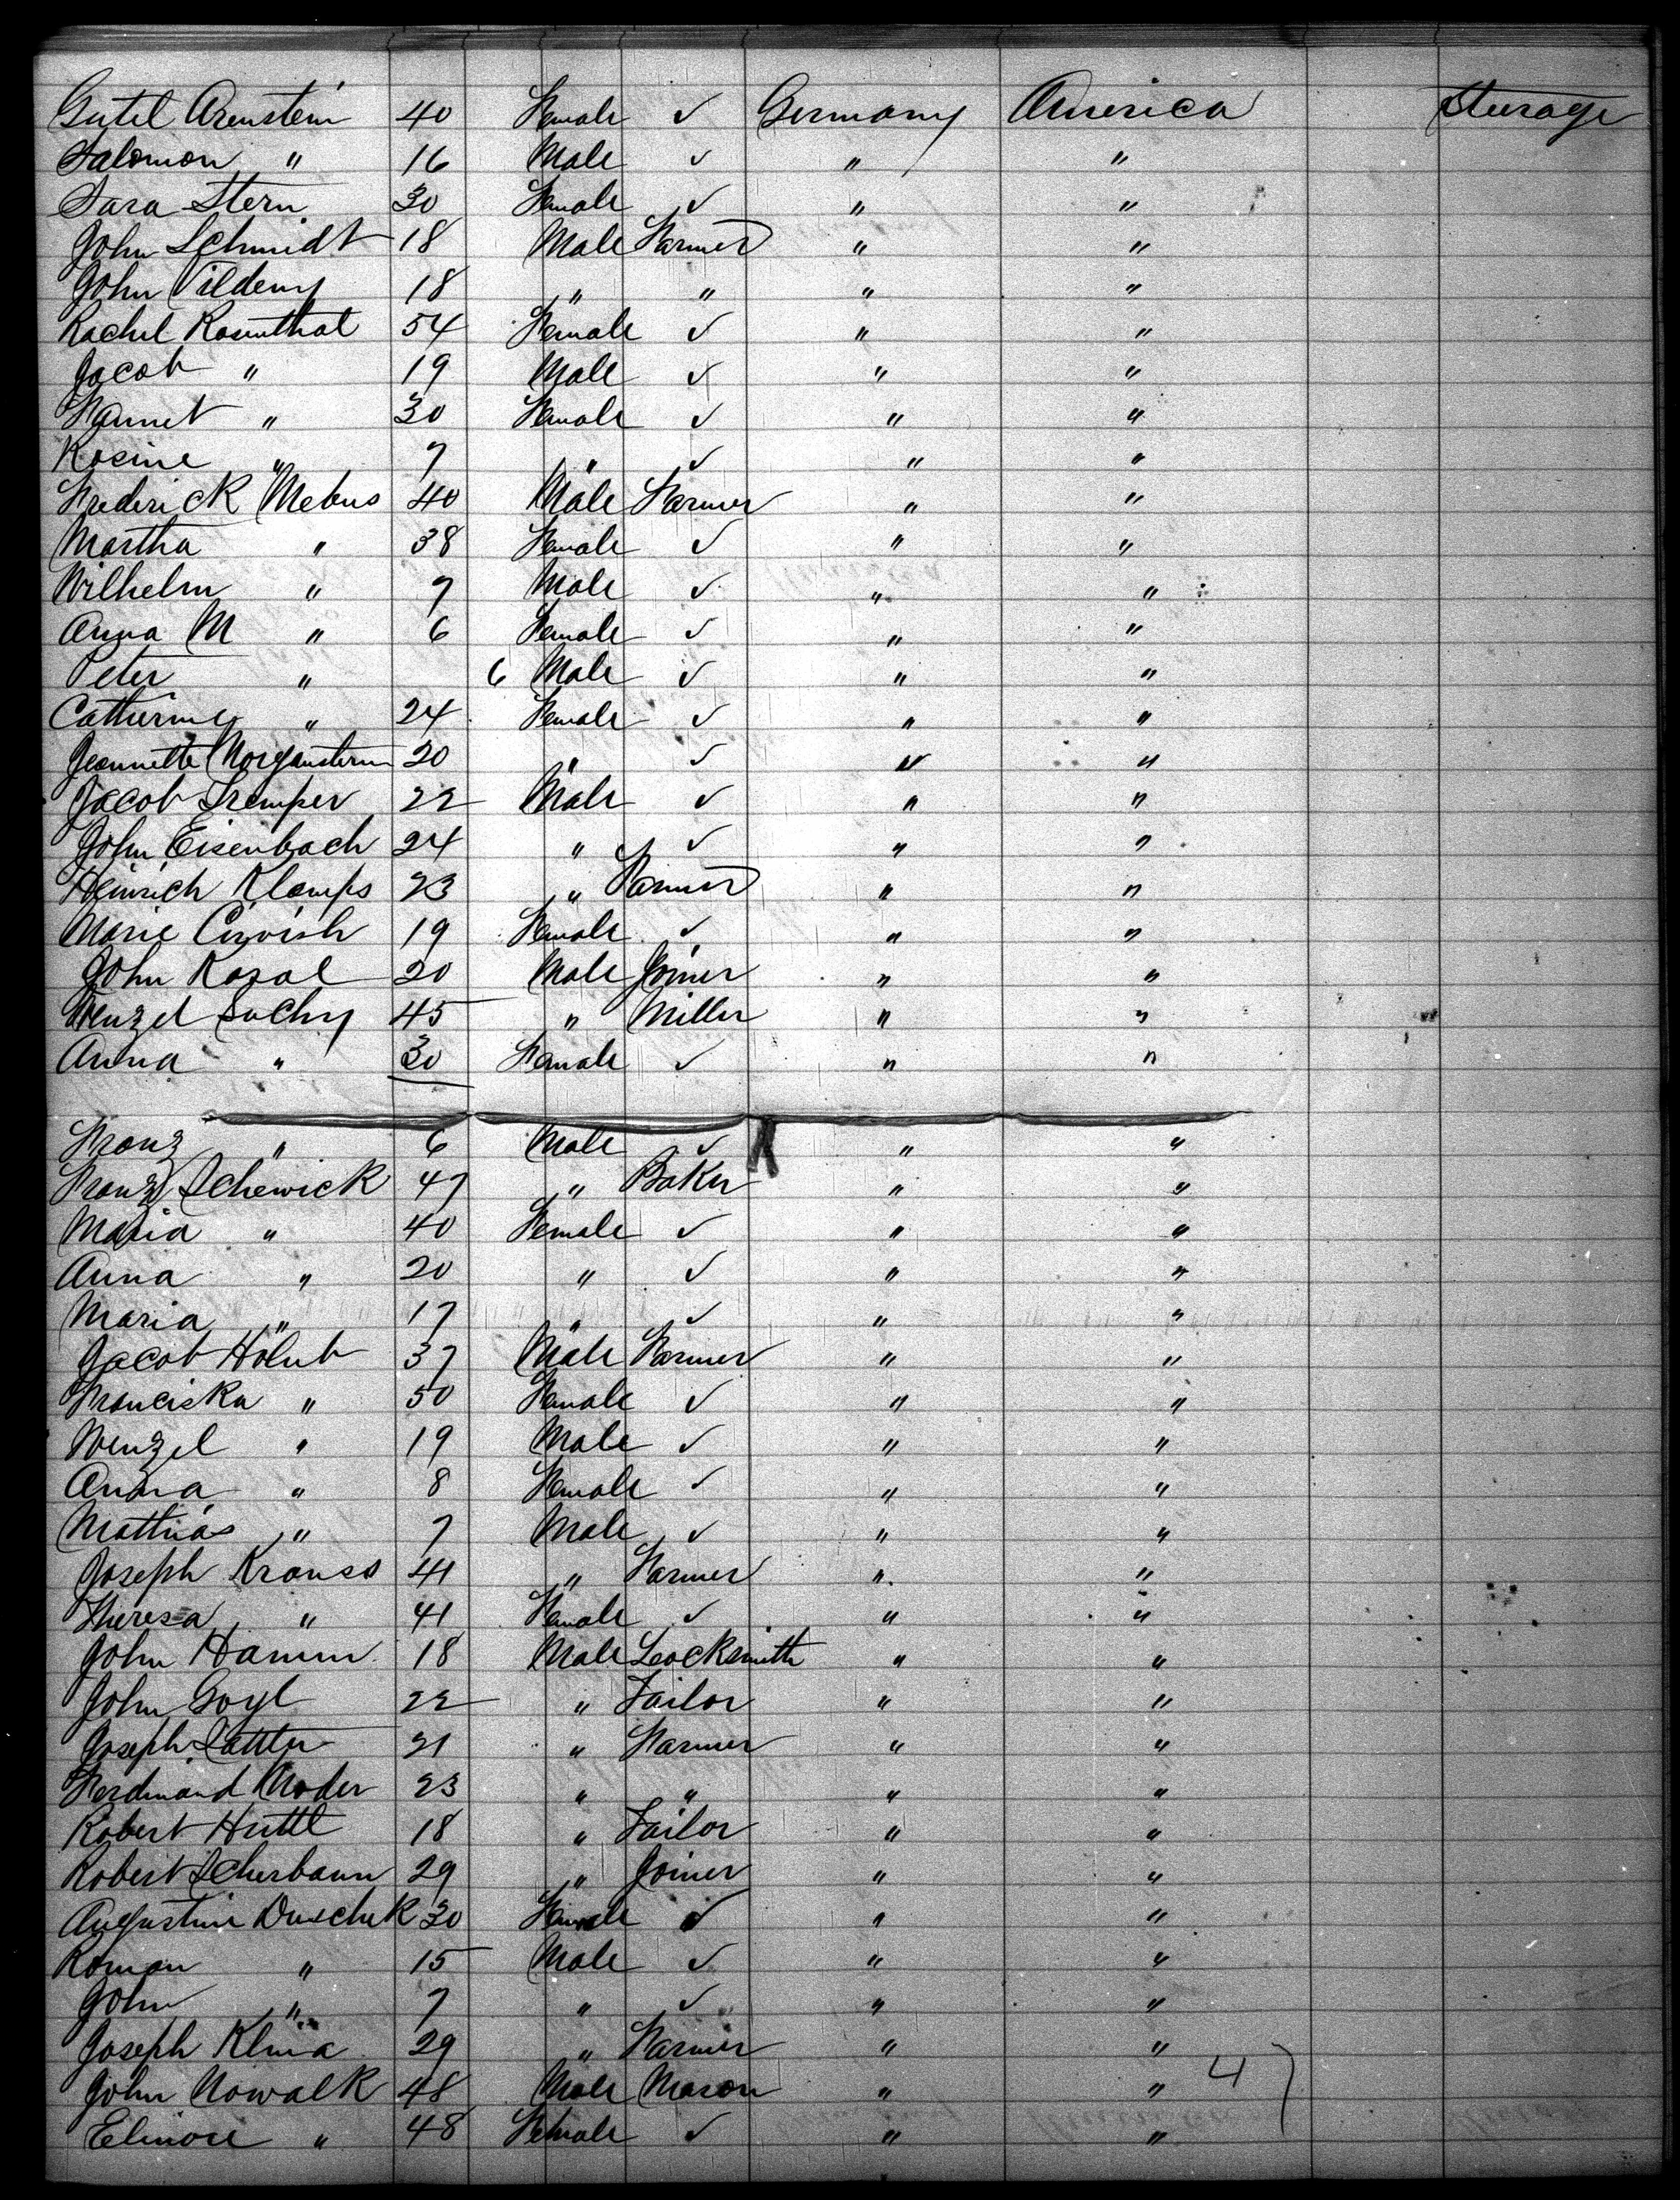 Gutel Arenstein 40 Female ✓ Germany America Steerage
Salomon " 16 Male ✓ " "
Sara Stern 30 Female ✓ " "
John Schmidt 18 Male Farmer " "
John Vildeny 18 " " " "
Rachel Rosenthal 54 Female ✓ " "
Jacob " 19 Male ✓ " "
Hannet " 30 Female ✓ " "
Rosine " 7 " ✓ " "
Frederick Mebus 40 Male Farmer " "
Martha " 38 Female ✓ " "
Wilhelm " 7 Male ✓ " "
Anna M " 6 Female ✓ " "
Peter " 6 Male ✓ " "
Catherine " 24 Female ✓ " "
Jeannette Morganstern 20 " ✓ " "
Jacob Tremper 22 Male ✓ " "
John Eisenbach 24 " ✓ " "
Heinrich Klamps 23 " Farmer " "
Marie 19 Female ✓ " "
John Kozal 20 Male Joiner " "
Wenzel Suchy 45 " Miller " "
Anna " 30 Female ✓ " "
Franz " 6 Male ✓ " "
Franz Schewick 47 " Baker " "
Maria " 40 Female ✓ " "
Anna " 20 " ✓ " "
Maria " 17 " ✓ " "
Jacob Holub 37 Male Farmer " "
Franciska " 50 Female ✓ " "
Wenzel " 19 Male ✓ " "
Anna " 8 Female ✓ " "
Mathias " 7 Male ✓ " "
Joseph Krauss 41 " Farmer " "
Theresa " 41 Female ✓ " "
John Hamm 18 Male Locksmith " "
John Goyl 22 " Tailor " "
Joseph Sattler 21 " Farmer " "
Ferdinand Moder 23 " " " "
Robert Huttl 18 " Tailor " "
Robert Scherbaum 29 " Joiner " "
Augustine Duschek 30 Female ✓ " "
Roman " 15 Male ✓ " "
John " 7 " ✓ " "
Joseph Klima 29 " Farmer " "
John Nowalk 48 Male Mason " " 47
Elinore " 48 Female ✓ " "